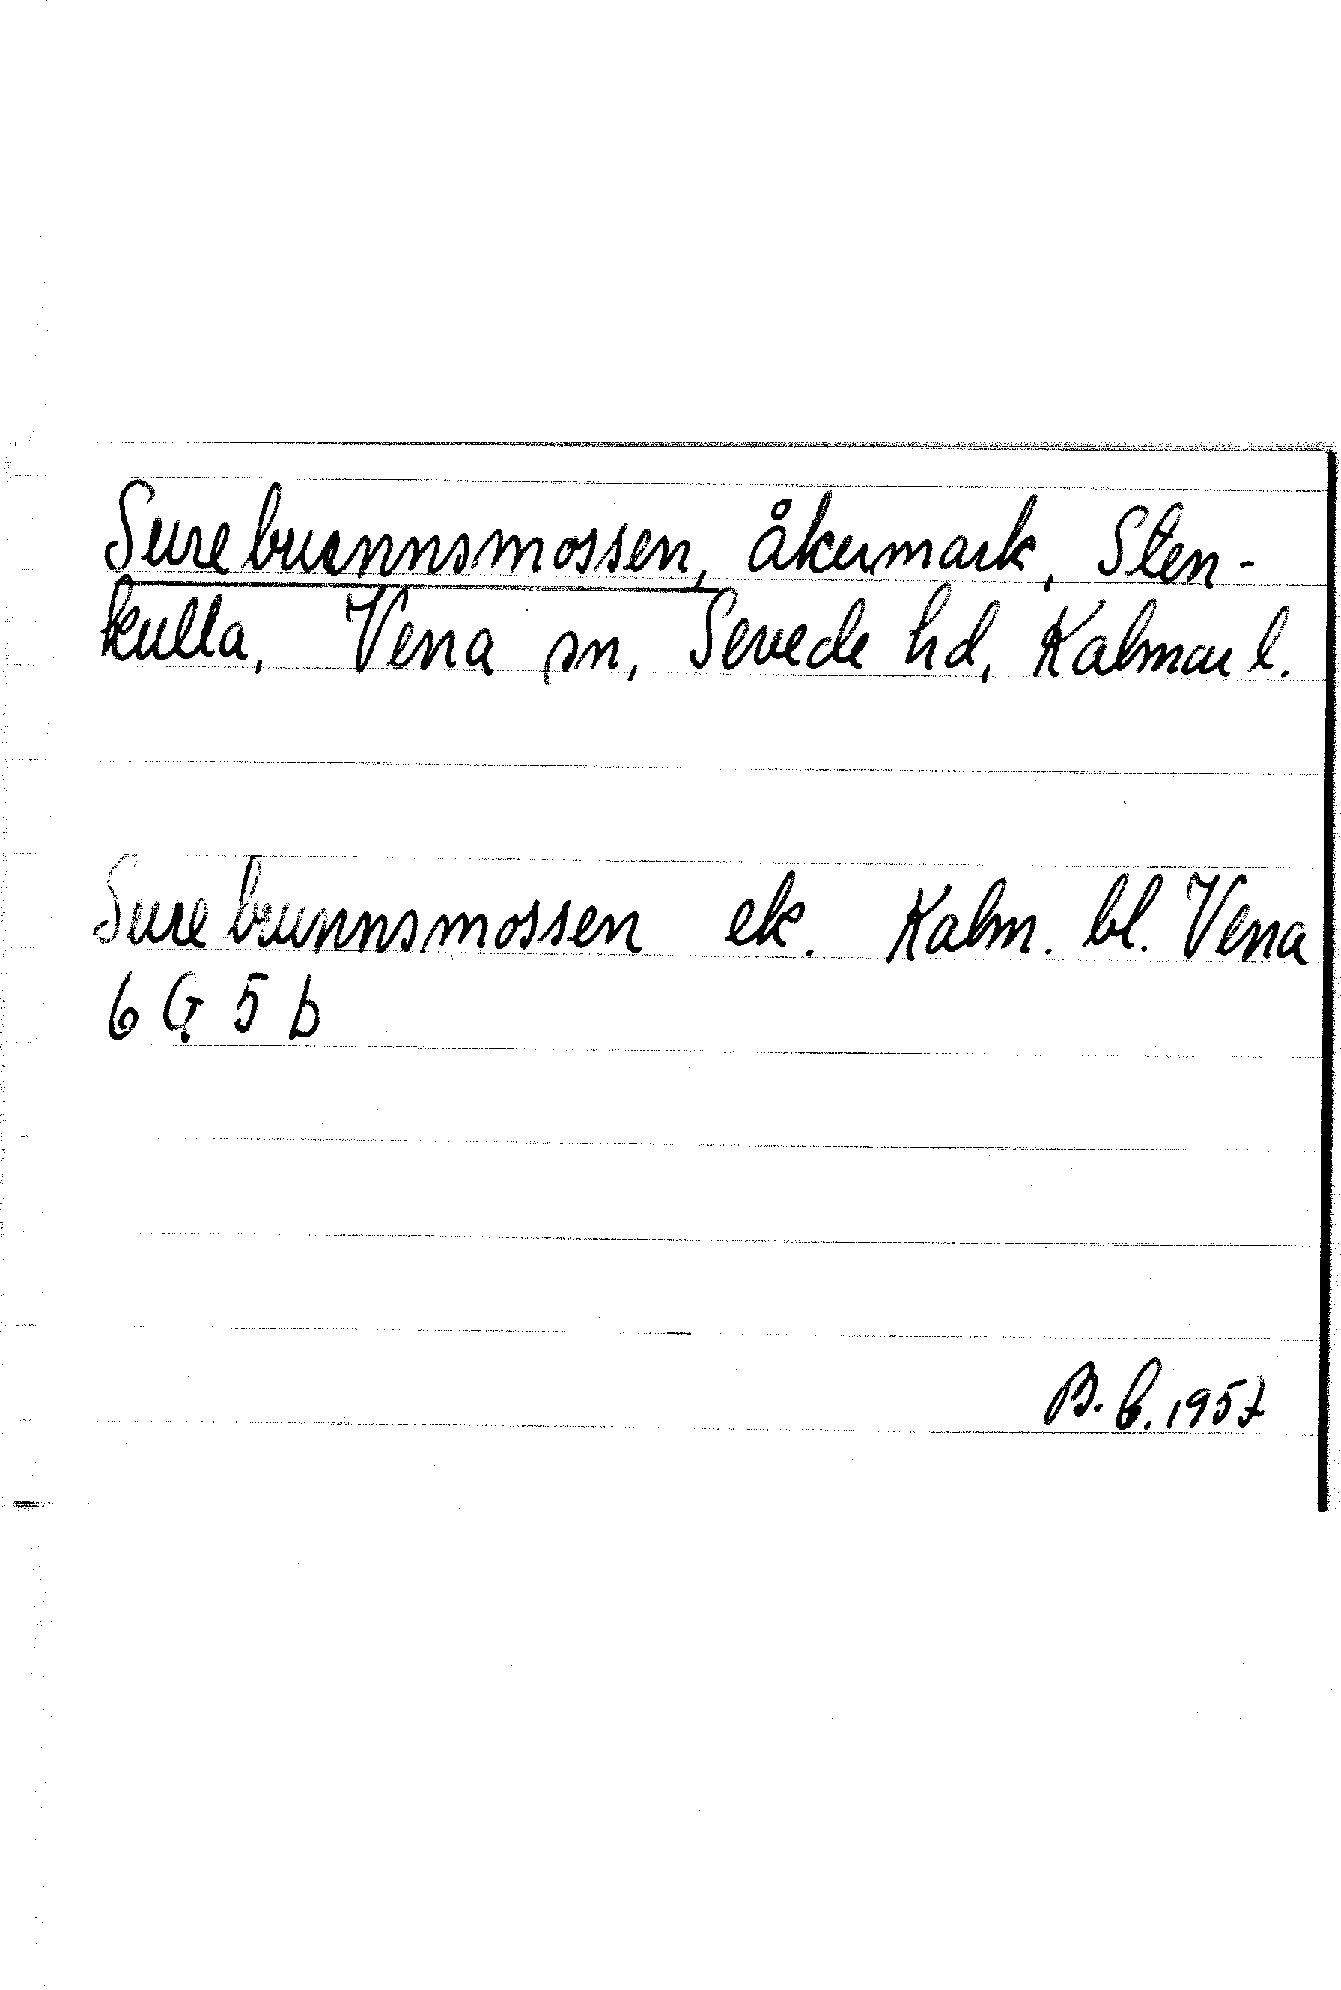 Surebrunnsmossen, åkermark, Sten-
kulla, Vena sn, Sevede hd, Kalmar l.
Surebrunnsmossen ek. Kalm. bl. Vena
6 G 5 b
B. G. 1957